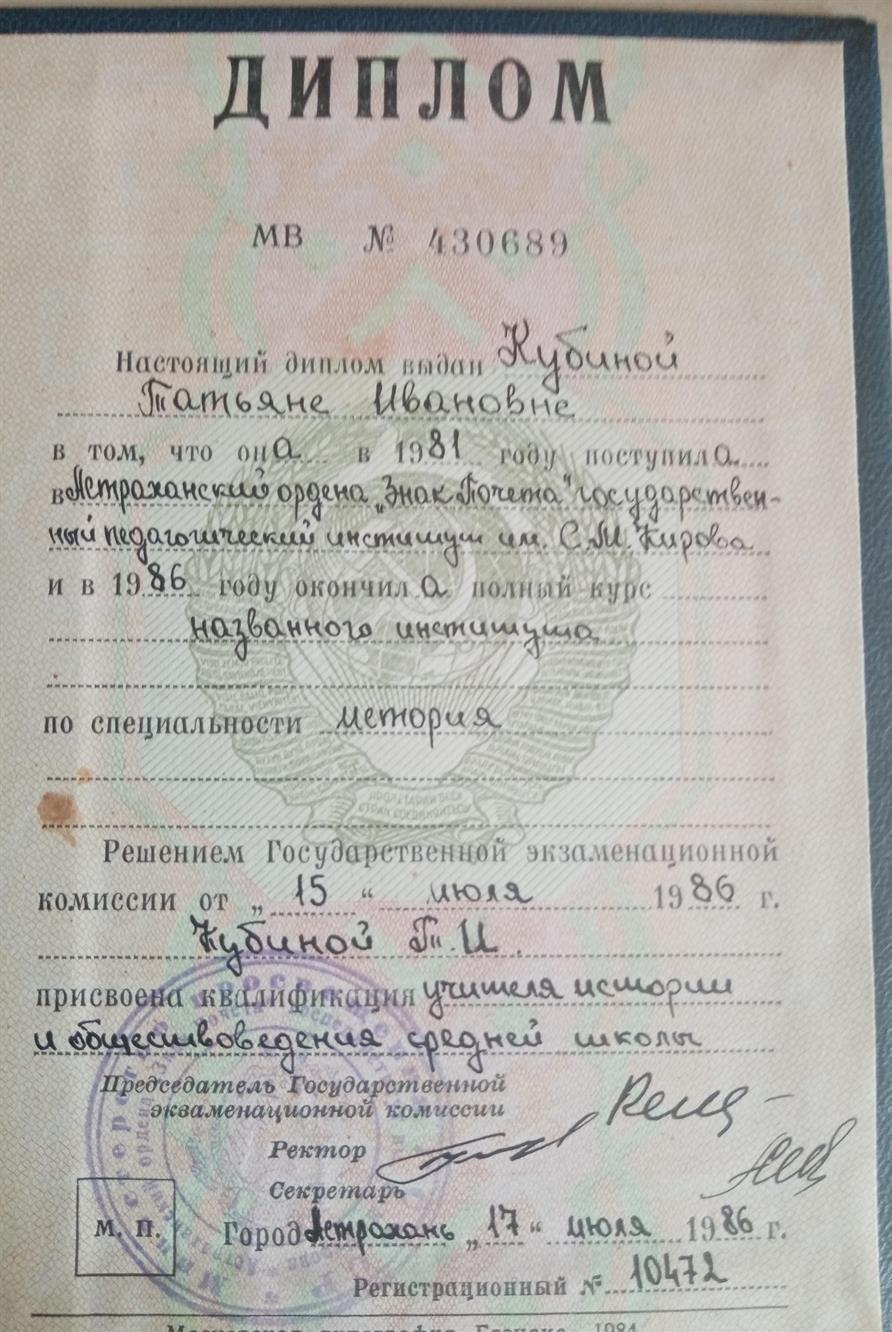 ДИПЛОМ
МВ № 430689
Настоящий диплом выдан Кубиной
Татьяне Ивановне
в том, что она в 1981 году поступила
в Астраханский ордена „Знак Почета" государствен-
ный педагогический институт им. С.М. Кирова
и в 1986 году окончила полный курс
названного института
по специальности история
Решением Государственной экзаменационной
комиссии от „15" июля 1986 г.
Кубиной Т.И.
присвоена квалификация учителя истории
и обществоведения средней школы
Председатель Государственной
экзаменационной комиссии
Ректор
Секретарь
М. П.
Город Астрахань „17" июля 1986 г.
Регистрационный № 10472